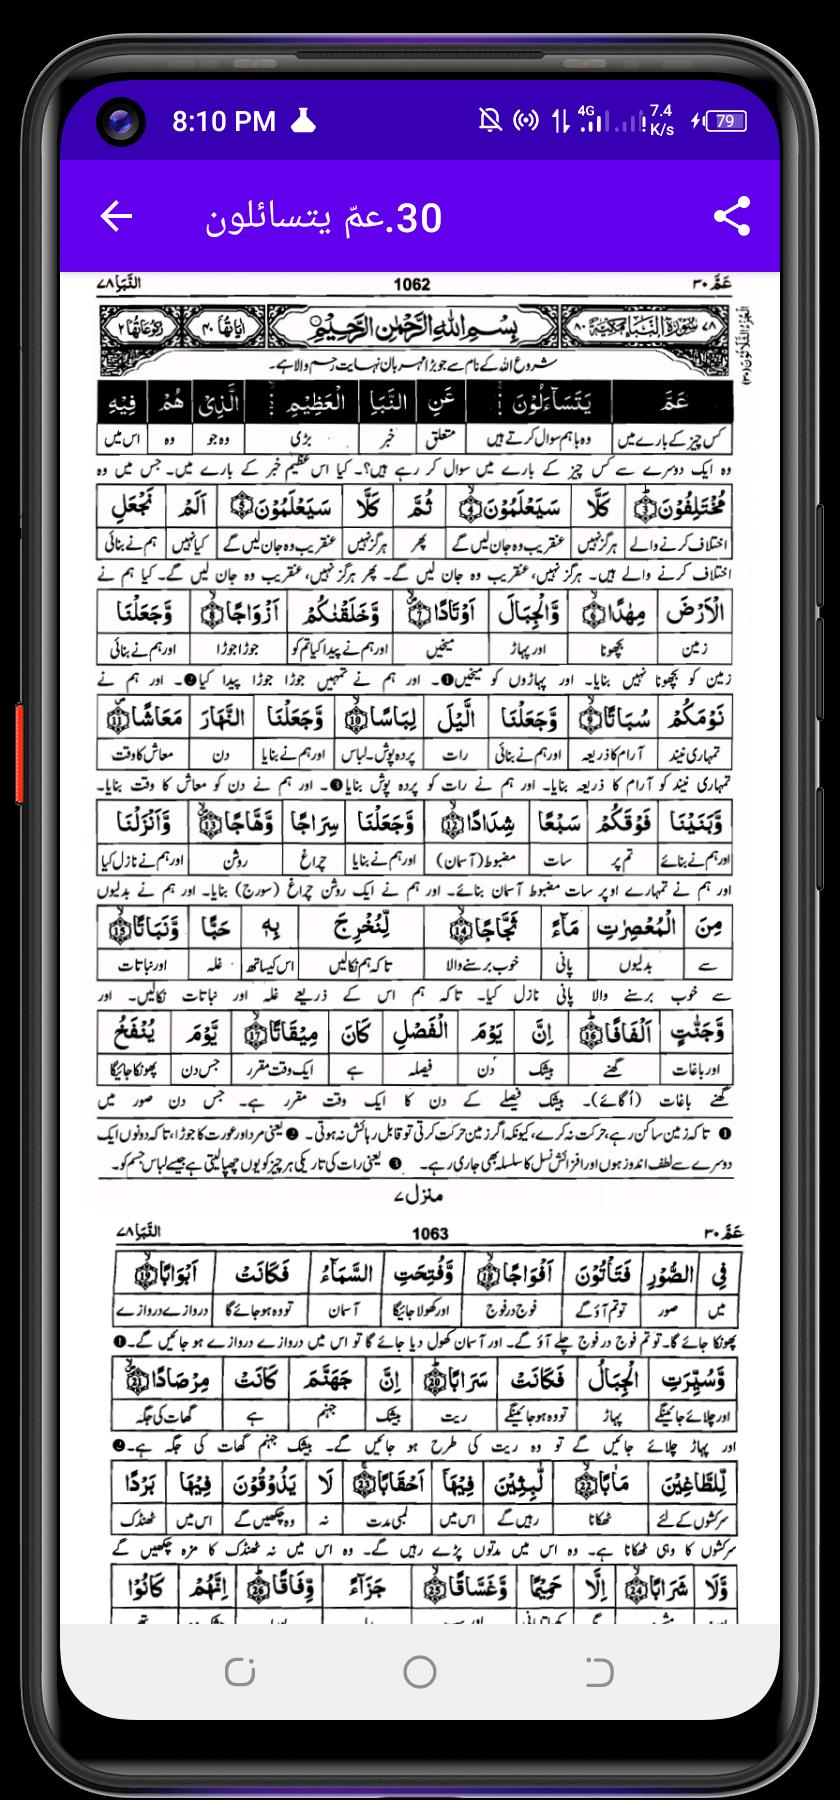 8:10 PM 4G 7.4 K/s 79
30.عمّ يتسائلون
عَمَّ ۳۰ 1062 النَّبَاِ ۷۸
۷۸ سُوْرَةُ النَّبَاِ مَكِّيَّةٌ ۸۰ بِسْمِ اللّٰهِ الرَّحْمٰنِ الرَّحِيْمِ اٰيَاتُهَا ۴۰ رُكُوْعَاتُهَا ۲
شروع اللہ کے نام سے جو بڑا مہربان نہایت رحم والا ہے۔
عَمَّ يَتَسَآءَلُوْنَ عَنِ النَّبَاِ الْعَظِيْمِ الَّذِىْ هُمْ فِيْهِ
کس چیز کے بارے میں وہ باہم سوال کرتے ہیں متعلق خبر بڑی وہ جو وہ اس میں
وہ ایک دوسرے سے کس چیز کے بارے میں سوال کر رہے ہیں؟۔ کیا اس عظیم خبر کے بارے میں۔ جس میں وہ
مُخْتَلِفُوْنَ 3 كَلَّا سَيَعْلَمُوْنَ 4 ثُمَّ كَلَّا سَيَعْلَمُوْنَ 5 اَلَمْ نَجْعَلِ
اختلاف کرنے والے ہرگز نہیں عنقریب وہ جان لیں گے پھر ہرگز نہیں عنقریب وہ جان لیں گے کیا نہیں ہم نے بنائی
اختلاف کرنے والے ہیں۔ ہرگز نہیں، عنقریب وہ جان لیں گے۔ پھر ہرگز نہیں، عنقریب وہ جان لیں گے۔ کیا ہم نے
الْاَرْضَ مِهٰدًا 6 وَّالْجِبَالَ اَوْتَادًا 7 وَّخَلَقْنٰكُمْ اَزْوَاجًا 8 وَّجَعَلْنَا
زمین بچھونا اور پہاڑ میخیں اور ہم نے پیدا کیا تم کو جوڑا جوڑا اور ہم نے بنائی
زمین کو بچھونا نہیں بنایا۔ اور پہاڑوں کو میخیں❶۔ اور ہم نے تمہیں جوڑا جوڑا پیدا کیا❷۔ اور ہم نے
نَوْمَكُمْ سُبَاتًا 9 وَّجَعَلْنَا الَّيْلَ لِبَاسًا 10 وَّجَعَلْنَا النَّهَارَ مَعَاشًا 11
تمہاری نیند آرام کا ذریعہ اور ہم نے بنائی رات پردہ پوش۔لباس اور ہم نے بنایا دن معاش کا وقت
تمہاری نیند کو آرام کا ذریعہ بنایا۔ اور ہم نے رات کو پردہ پوش بنایا❸۔ اور ہم نے دن کو معاش کا وقت بنایا۔
وَّبَنَيْنَا فَوْقَكُمْ سَبْعًا شِدَادًا 12 وَّجَعَلْنَا سِرَاجًا وَّهَّاجًا 13 وَّاَنْزَلْنَا
اور ہم نے بنائے تم پر سات مضبوط (آسمان) اور ہم نے بنایا چراغ روشن اور ہم نے نازل کیا
اور ہم نے تمہارے اوپر سات مضبوط آسمان بنائے۔ اور ہم نے ایک روشن چراغ (سورج) بنایا۔ اور ہم نے بدلیوں
مِنَ الْمُعْصِرٰتِ مَآءً ثَجَّاجًا 14 لِّنُخْرِجَ بِهٖ حَبًّا وَّنَبَاتًا 15
سے بدلیوں پانی خوب برسنے والا تاکہ ہم نکالیں اس کیساتھ غلہ اور نباتات
سے خوب برسنے والا پانی نازل کیا۔ تاکہ ہم اس کے ذریعے غلہ اور نباتات نکالیں۔ اور
وَّجَنّٰتٍ اَلْفَافًا 16 اِنَّ يَوْمَ الْفَصْلِ كَانَ مِيْقَاتًا 17 يَّوْمَ يُنْفَخُ
اور باغات گھنے بیشک دن فیصلہ ہے ایک وقت مقرر جس دن پھونکا جائیگا
گھنے باغات (اُگائے)۔ بیشک فیصلے کے دن کا ایک وقت مقرر ہے۔ جس دن صور میں
❶ تاکہ زمین ساکن رہے، حرکت نہ کرے، کیونکہ اگر زمین حرکت کرتی تو قابل رہائش نہ ہوتی۔ ❷ یعنی مرد اور عورت کا جوڑا، تاکہ دونوں ایک
دوسرے سے لطف اندوز ہوں اور افزائش نسل کا سلسلہ بھی جاری رہے۔ ❸ یعنی رات کی تاریکی ہر چیز کو یوں چھپا لیتی ہے جیسے لباس جسم کو۔
منزل ۷
عَمَّ ۳۰ 1063 النَّبَاِ ۷۸
فِى الصُّوْرِ فَتَاْتُوْنَ اَفْوَاجًا 18 وَّفُتِحَتِ السَّمَآءُ فَكَانَتْ اَبْوَابًا 19
میں صور تو تم آؤ گے فوج در فوج اور کھولا جائیگا آسمان تو وہ ہو جائے گا دروازے دروازے
پھونکا جائے گا۔ تو تم فوج در فوج چلے آؤ گے۔ اور آسمان کھول دیا جائے گا تو اس میں دروازے دروازے ہو جائیں گے۔❶
وَّسُيِّرَتِ الْجِبَالُ فَكَانَتْ سَرَابًا 20 اِنَّ جَهَنَّمَ كَانَتْ مِرْصَادًا 21
اور چلائے جائینگے پہاڑ تو وہ ہو جائینگے ریت بیشک جہنم ہے گھات کی جگہ
اور پہاڑ چلائے جائیں گے تو وہ ریت کی طرح ہو جائیں گے۔ بیشک جہنم گھات کی جگہ ہے۔❷
لِّلطَّاغِيْنَ مَاٰبًا 22 لّٰبِثِيْنَ فِيْهَآ اَحْقَابًا 23 لَا يَذُوْقُوْنَ فِيْهَا بَرْدًا
سرکشوں کے لئے ٹھکانا رہیں گے اس میں لمبی مدت نہ وہ چکھیں گے اس میں ٹھنڈک
سرکشوں کا وہی ٹھکانا ہے۔ وہ اس میں مدتوں پڑے رہیں گے۔ وہ اس میں نہ ٹھنڈک کا مزہ چکھیں گے
وَّلَا شَرَابًا 24 اِلَّا حَمِيْمًا وَّغَسَّاقًا 25 جَزَآءً وِّفَاقًا 26 اِنَّهُمْ كَانُوْا